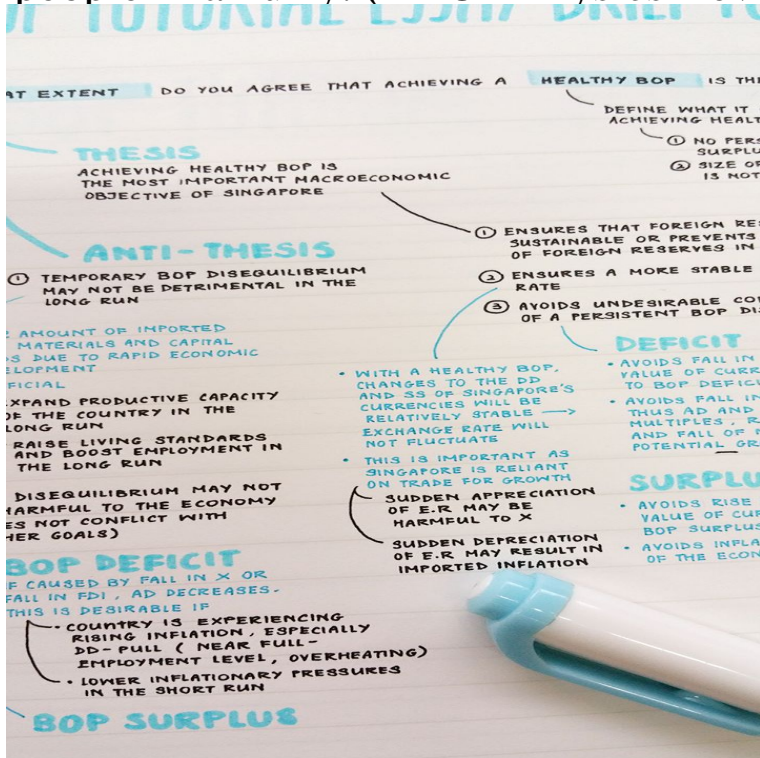 TUTORIAL ESSAY BRIEF
AT EXTENT DO YOU AGREE THAT ACHIEVING A HEALTHY BOP IS THE
DEFINE WHAT IT
ACHIEVING HEALT
① NO PERS
SURPLU
② SIZE OF
IS NOT
THESIS
ACHIEVING HEALTHY BOP IS
THE MOST IMPORTANT MACROECONOMIC
OBJECTIVE OF SINGAPORE
① ENSURES THAT FOREIGN RE
SUSTAINABLE OR PREVENTS
OF FOREIGN RESERVES IN
② ENSURES A MORE STABLE
RATE
③ AVOIDS UNDESIRABLE CO
OF A PERSISTENT BOP DI
ANTI-THESIS
① TEMPORARY BOP DISEQUILIBRIUM
MAY NOT BE DETRIMENTAL IN THE
LONG RUN
AMOUNT OF IMPORTED
MATERIALS AND CAPITAL
S DUE TO RAPID ECONOMIC
ELOPMENT
FICIAL
EXPAND PRODUCTIVE CAPACITY
OF THE COUNTRY IN THE
LONG RUN
RAISE LIVING STANDARDS
AND BOOST EMPLOYMENT IN
THE LONG RUN
DISEQUILIBRIUM MAY NOT
HARMFUL TO THE ECONOMY
ES NOT CONFLICT WITH
HER GOALS)
BOP DEFICIT
IF CAUSED BY FALL IN X OR
FALL IN FDI, AD DECREASES.
THIS IS DESIRABLE IF
• COUNTRY IS EXPERIENCING
RISING INFLATION, ESPECIALLY
DD-PULL (NEAR FULL-
EMPLOYMENT LEVEL, OVERHEATING)
• LOWER INFLATIONARY PRESSURES
IN THE SHORT RUN
BOP SURPLUS
• WITH A HEALTHY BOP,
CHANGES TO THE DD
AND SS OF SINGAPORE'S
CURRENCIES WILL BE
RELATIVELY STABLE →
EXCHANGE RATE WILL
NOT FLUCTUATE
• THIS IS IMPORTANT AS
SINGAPORE IS RELIANT
ON TRADE FOR GROWTH
• SUDDEN APPRECIATION
OF E.R MAY BE
HARMFUL TO X
• SUDDEN DEPRECIATION
OF E.R MAY RESULT IN
IMPORTED INFLATION
DEFICIT
• AVOIDS FALL IN
VALUE OF CURR
TO BOP DEFIC
• AVOIDS FALL IN
THUS AD AND
MULTIPLES, R
AND FALL OF
POTENTIAL GR
SURPLU
• AVOIDS RISE
VALUE OF CUR
BOP SURPLUS
• AVOIDS INFLA
OF THE ECON